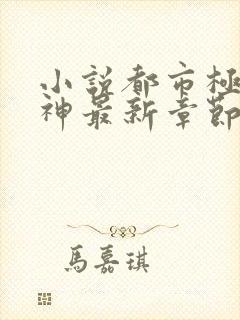 小説都市極
神最新章節
馬嘉琪